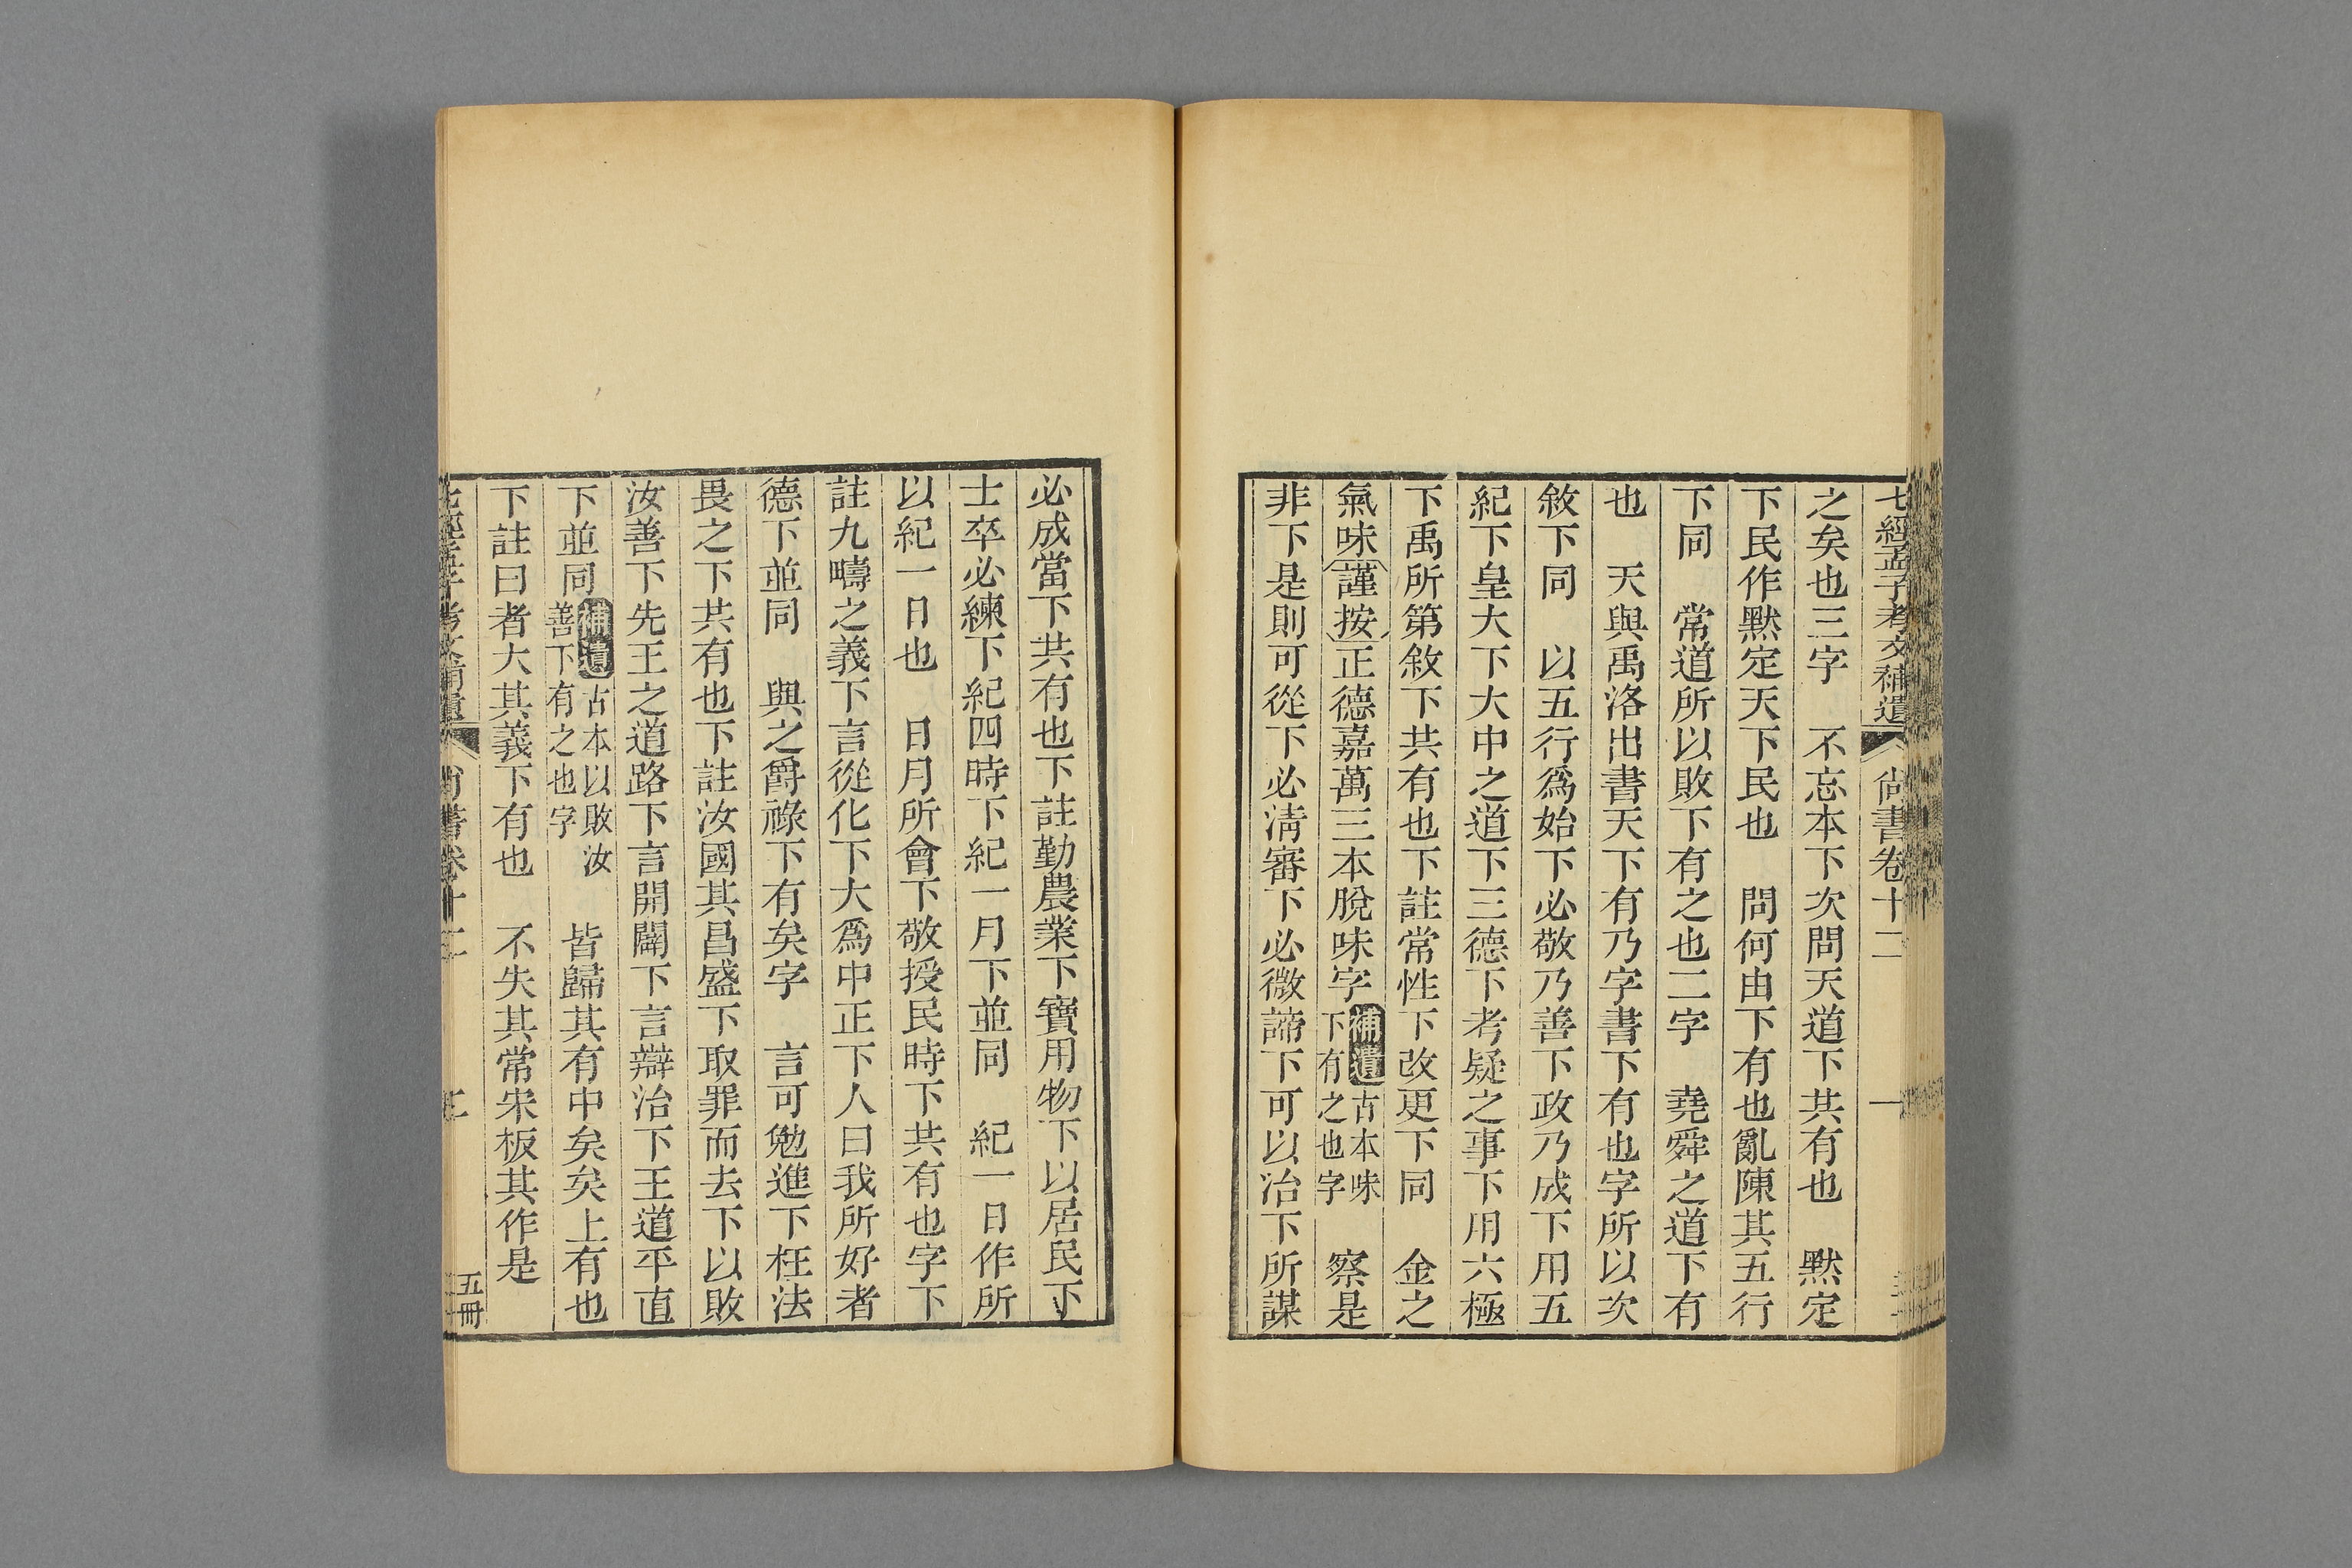 七經孟子考文補遺 尚書卷十二 一
之矣也三字　不忘本下次問天道下共有也　默定
下民作默定天下民也　問何由下有也亂陳其五行
下同　常道所以敗下有之也二字　堯舜之道下有
也　天與禹洛出書天下有乃字書下有也字所以次
敘下同　以五行爲始下必敬乃善下政乃成下用五
紀下皇大下大中之道下三德下考疑之事下用六極
下禹所第敘下共有也下註常性下改更下同　金之
氣味謹按正德嘉萬三本脫味字補遺古本味下有之也字　察是
非下是則可從下必淸審下必微諦下可以治下所謀
必成當下共有也下註勤農業下寶用物下以居民下
士卒必練下紀四時下紀一月下並同　紀一日作所
以紀一日也　日月所會下敬授民時下共有也字下
註九疇之義下言從化下大爲中正下人曰我所好者
德下並同　與之爵祿下有矣字　言可勉進下枉法
畏之下共有也下註汝國其昌盛下取罪而去下以敗
汝善下先王之道路下言開闢下言辯治下王道平直
下並同補遺古本以敗汝善下有之也字　皆歸其有中矣矣上有也
下註曰者大其義下有也　不失其常宋板其作是
尚書卷十二 二 五冊